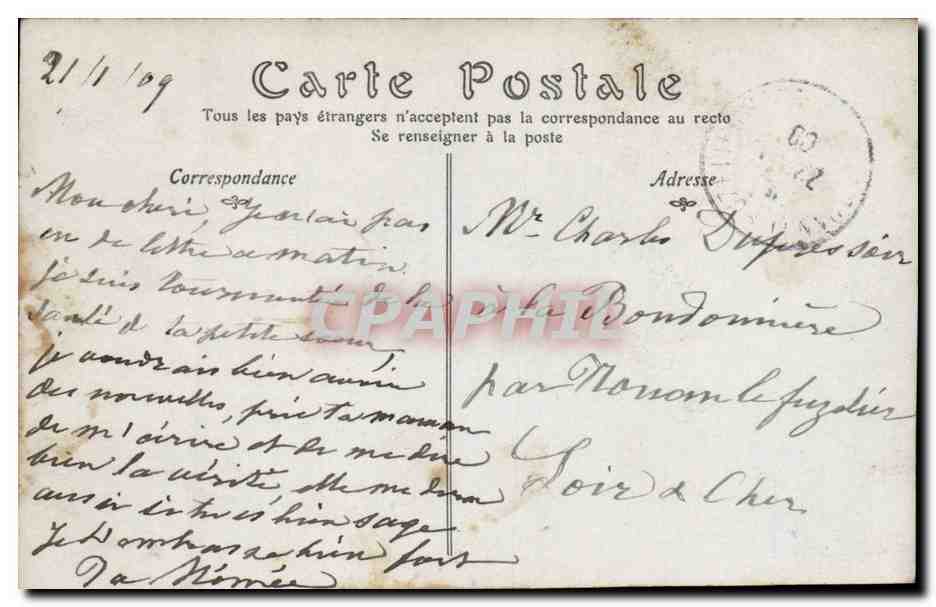 21/1/09
Carte Postale
Tous les pays étrangers n'acceptent pas la correspondance au recto
Se renseigner à la poste
Correspondance
Mon cheri, Je n'ai pas
eu de lettre ce matin.
je suis tourmentée de la
santé de ta petite soeur
je voudrais bien avoir
des nouvelles, prie ta maman
de m'écrire et de me dire
bien la vérité elle me dira
aussi si tu es bien sage.
Je t'embrasse bien fort
Ta Mémée
Adresse
Mr. Charles Dupressoir
à la Bondonnière
par Nouan le fuzelier
Loir & Cher
CPAPHIL